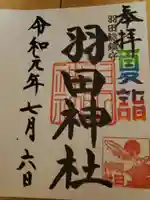 奉拝
夏詣
羽田神社
令和元年七月六日